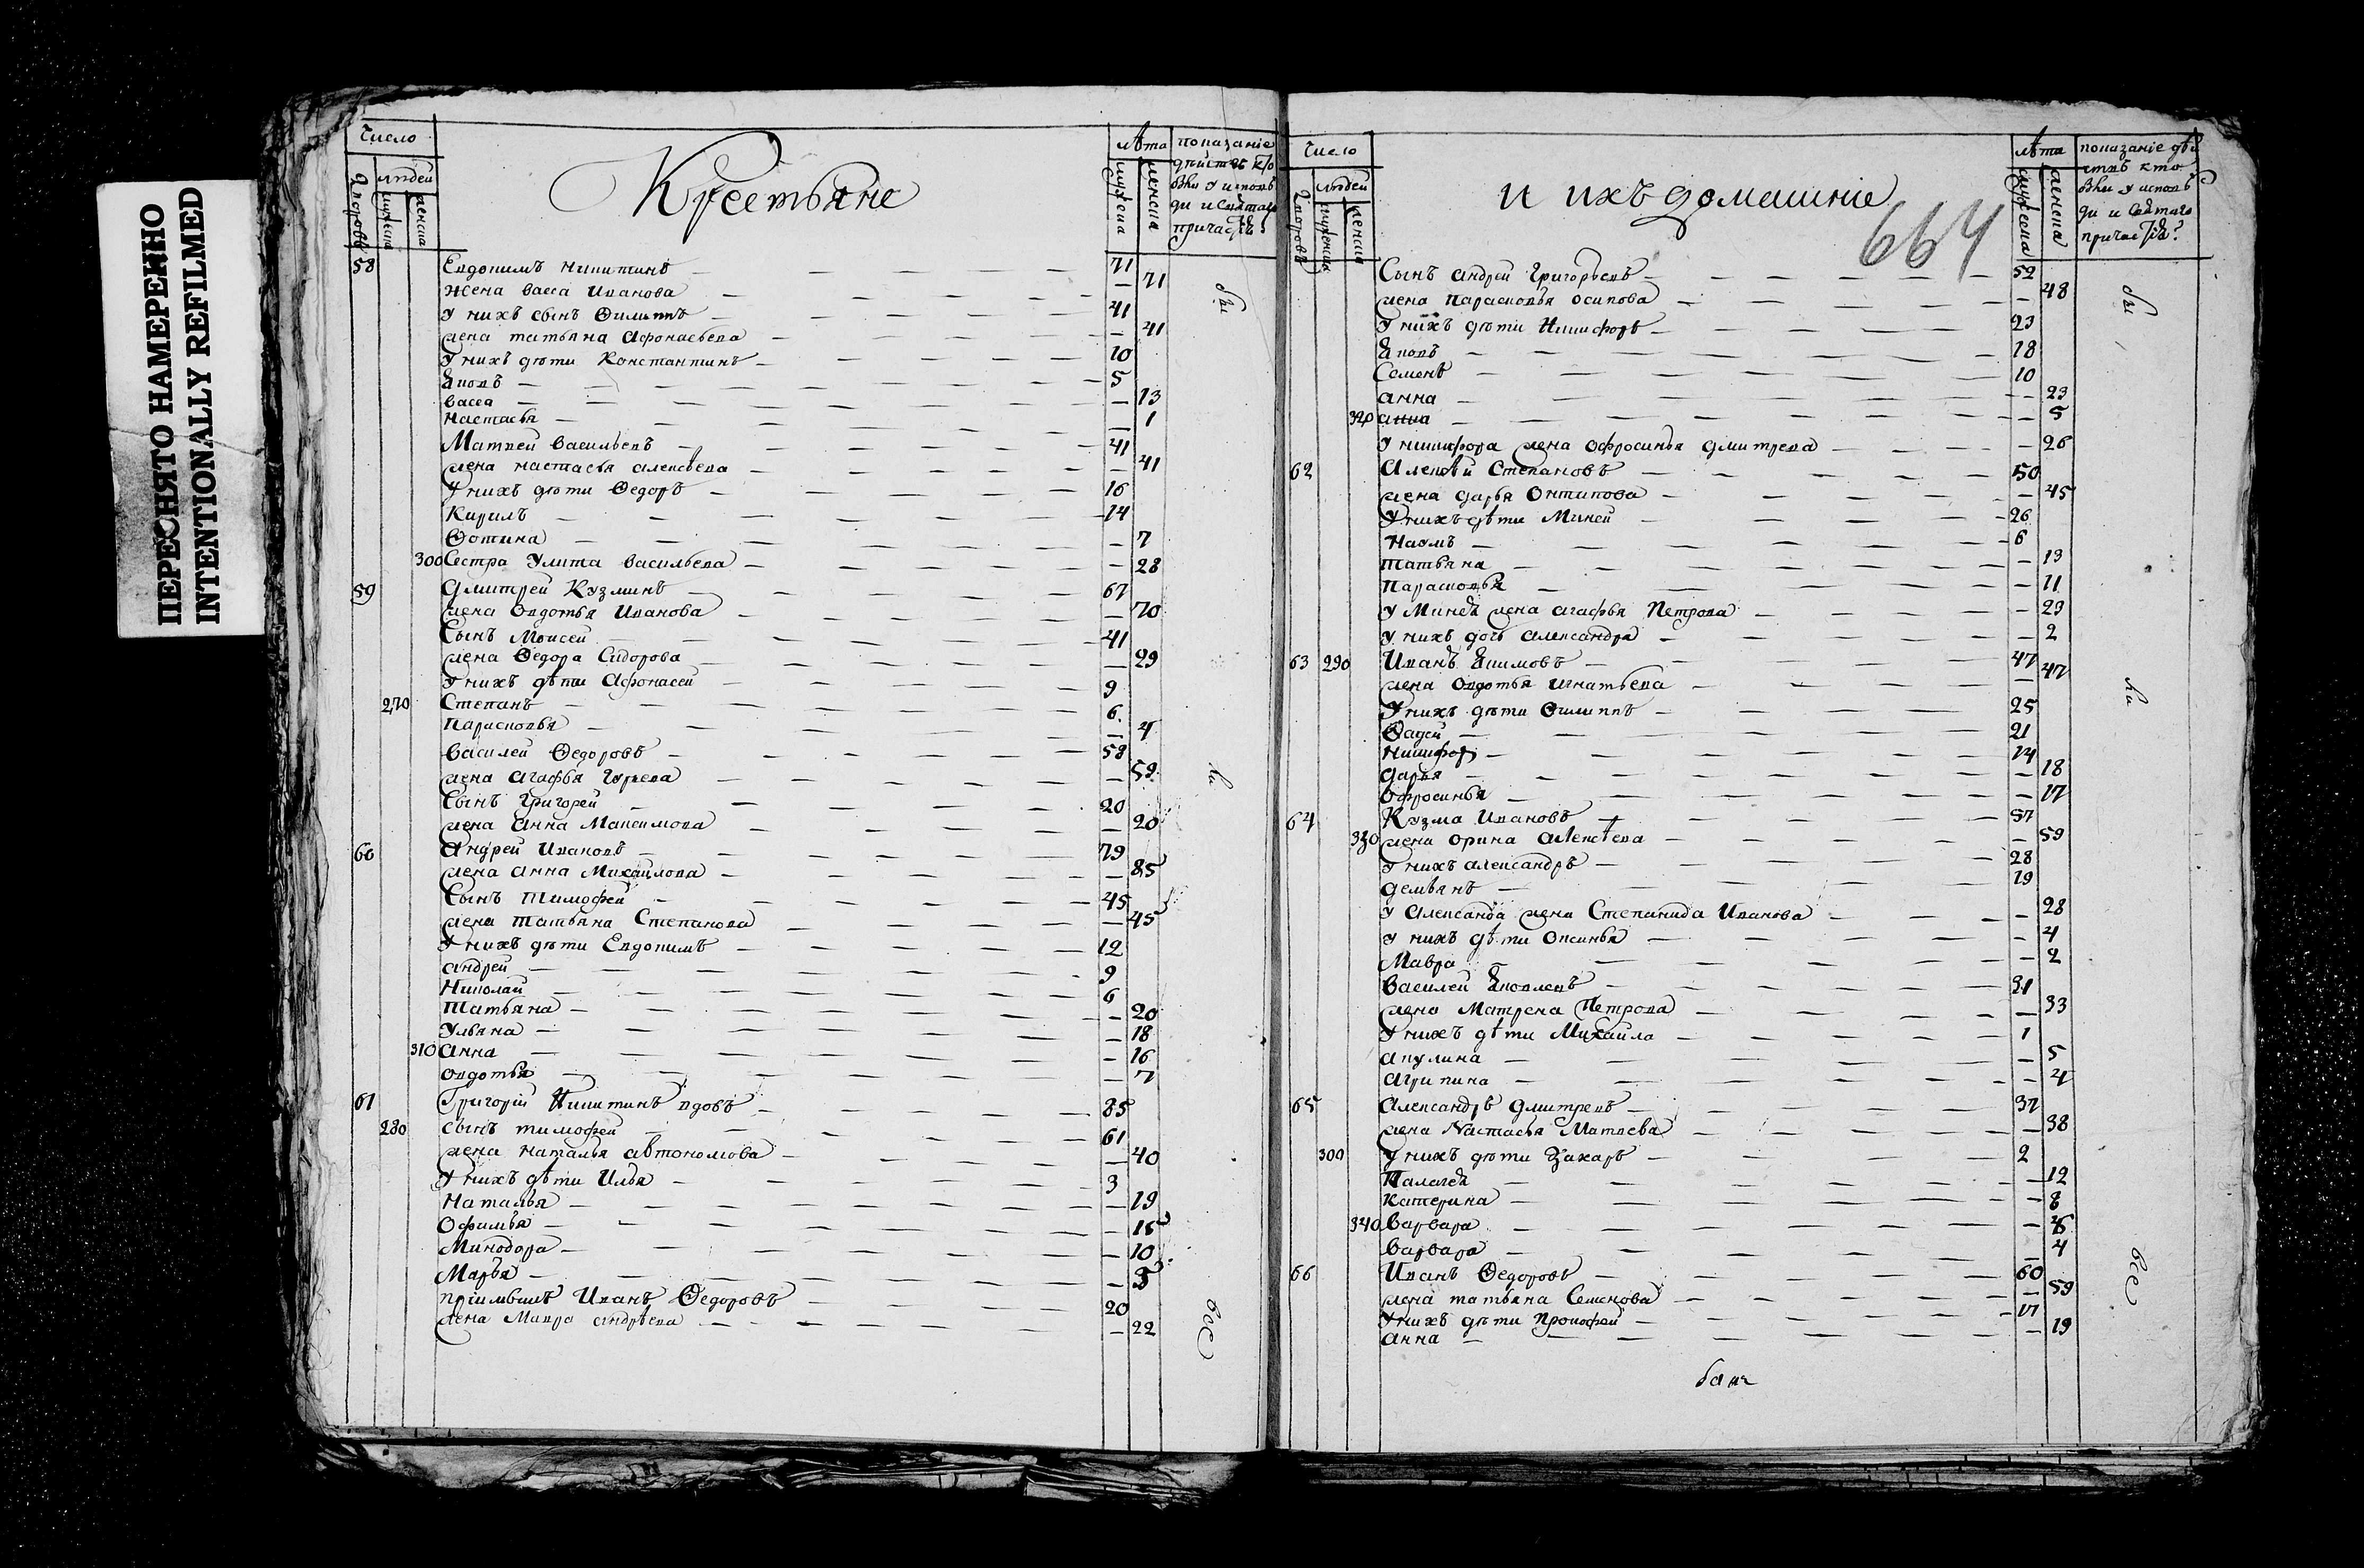 ПЕРЕСНЯТО НАМЕРЕННО
INTENTIONALLY REFILMED
Число
людей
дворовъ
мужеска
женска
Крестьяне
лѣта
мужеска
женска
показаніе
дѣйствъ кто
былъ у исповѣ
ди и святаго
причастія
58 Евдокимъ Никитинъ 71
жена васса Иванова 71
У нихъ сынъ Филиппъ 41
жена татьяна Афонасьева 41
У нихъ дѣти Константинъ 10
Яковъ 5
васса 13
настасья 1
Матвей васильевъ 41
жена настасья алексѣева 41
У нихъ дѣти Федоръ 16
Кирилъ 14
Фотина 7
300 Сестра Улита васильева 28
59 Дмитрей Кузминъ 67
жена Овдотья Иванова 70
Сынъ Моисей 41
жена Федора Сидорова 29
У нихъ дѣти Афонасей 9
270 Степанъ 6
парасковья 4
василей Федоровъ 58
жена агафья Гурьева 59
Сынъ Григорей 20
жена анна Максимова 20
60 Андрей Ивановъ 79
жена анна Михайлова 85
Сынъ Тимофей 45
жена татьяна Степанова 45
У нихъ дѣти Евдокимъ 12
андрей 9
Николай 6
татьяна 20
Ульяна 18
310 анна 16
овдотья 7
61 Григорій Никитинъ вдовъ 85
280 сынъ тимофей 61
жена наталья автономова 40
У нихъ дѣти Илья 3
Наталья 19
Офимья 15
Минодора 10
Марья 3
пріимышъ Иванъ Федоровъ 20
жена Мавра андрѣева 22
бы
ли
всѣ
Число
людей
дворовъ
мужеска
женска
и ихъ домашніе
664
лѣта
мужеска
женска
показаніе дѣй
ствъ кто
былъ у исповѣ
ди и святаго
причастія?
Сынъ андрей Григорьевъ 52
жена парасковья осипова 48
У нихъ дѣти Никифоръ 23
Яковъ 18
Семенъ 10
анна 23
320 анна 5
У никифора жена офросинья дмитрева 26
62 Алексѣй Степановъ 50
жена дарья Онтипова 45
У нихъ дѣти Миней 26
Наумъ 6
татьяна 13
парасковья 11
У Минея жена агафья Петрова 29
У нихъ дочь александра 2
63 290 Иванъ Якимовъ 47
жена Овдотья игнатьева 47
У нихъ дѣти Филиппъ 25
Фадей 21
Никифоръ 14
дарья 18
офросинья 17
64 Кузма Ивановъ 57
330 жена орина алексѣева 59
У нихъ александръ 28
демьянъ 19
У александра жена Степанида Иванова 28
У нихъ дѣти Оксинья 4
Мавра 2
Василей Яковлевъ 31
жена Матрена Петрова 33
У нихъ дѣти Михаила 1
акулина 5
агрипина 4
65 александръ дмитревъ 37
жена Настасья Матвеева 38
300 У нихъ дѣти Захаръ 2
Палагея 12
катерина 8
340 варвара 6
варвара 4
66 Иванъ Федоровъ 60
жена татьяна Семенова 59
У нихъ дѣти Прокофей 17
анна 19
бы
ли
всѣ